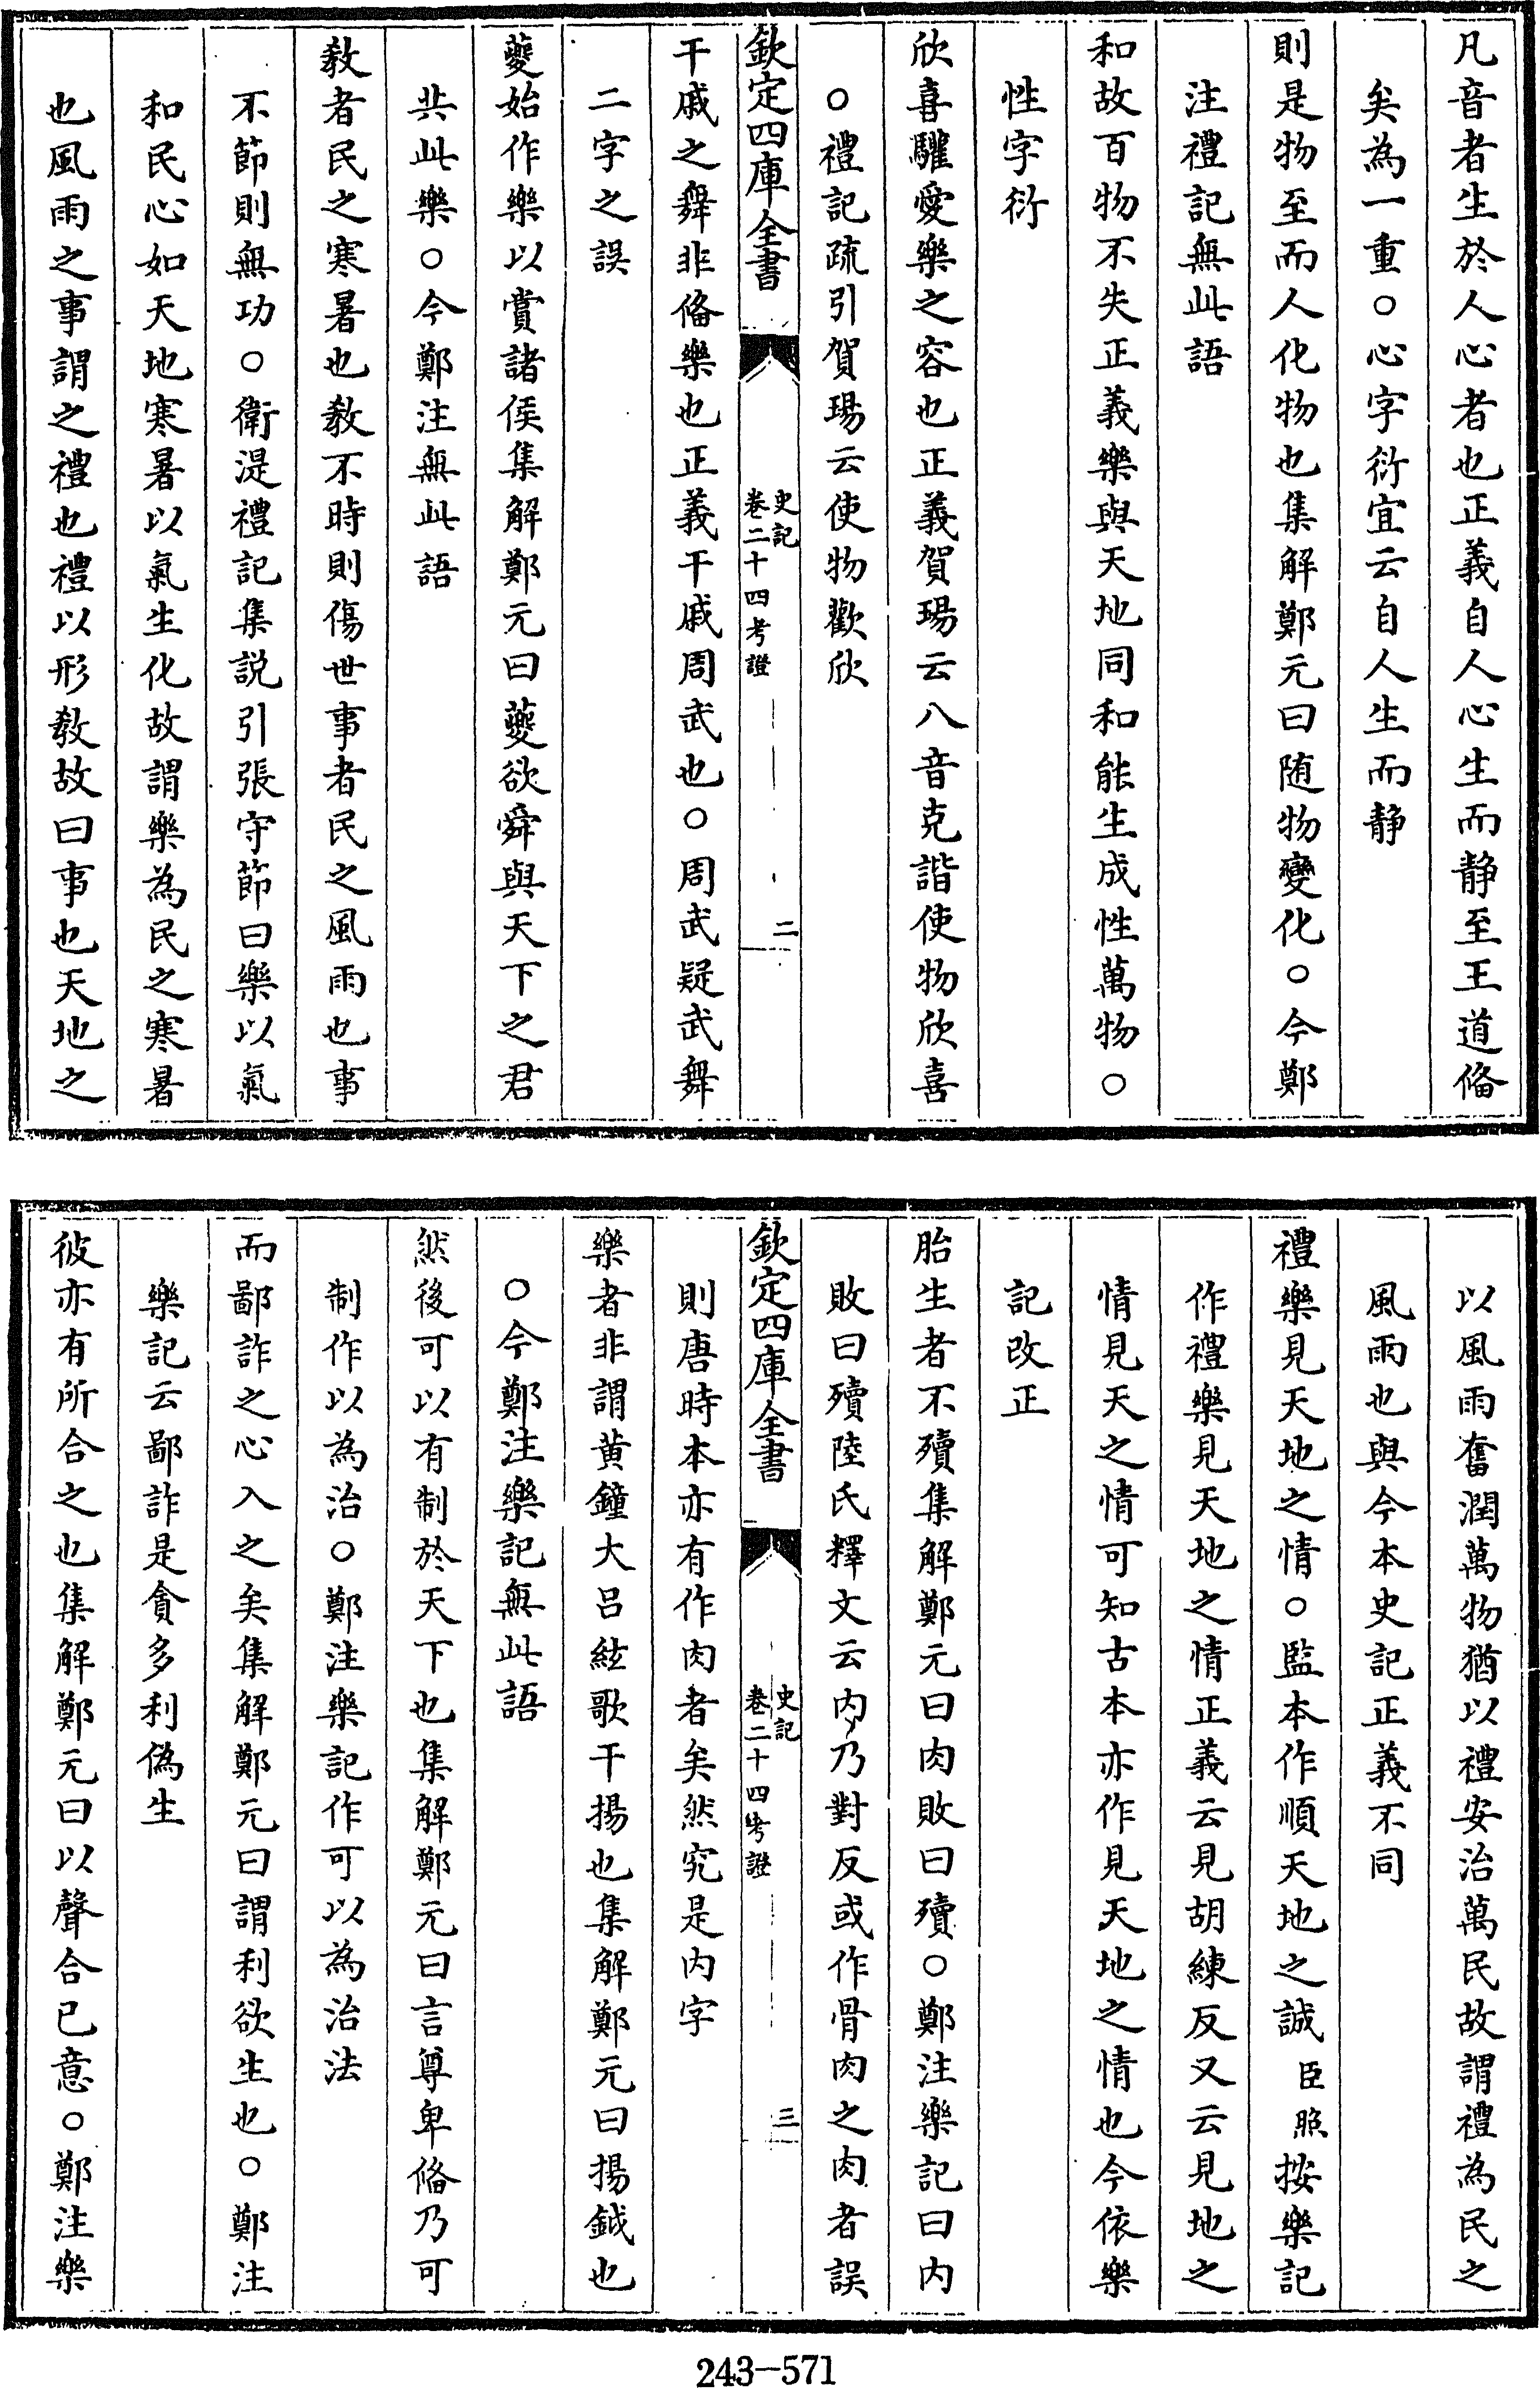 凡音者生於人心者也正義自人心生而静至王道偹
矣為一重○心字衍宜云自人生而静
則是物至而人化物也集解鄭元曰随物變化○今鄭
注禮記無此語
和故百物不失正義樂與天地同和能生成性萬物○
性字衍
欣喜驩愛樂之容也正義賀瑒云八音克諧使物欣喜
○禮記疏引賀瑒云使物歡欣
欽定四庫全書
史記
卷二十四考證
二
干戚之舞非偹樂也正義干戚周武也○周武疑武舞
二字之誤
夔始作樂以賞諸侯集解鄭元曰夔欲舜與天下之君
共此樂○今鄭注無此語
教者民之寒暑也教不時則傷世事者民之風雨也事
不節則無功○衛湜禮記集説引張守節曰樂以氣
和民心如天地寒暑以氣生化故謂樂為民之寒暑
也風雨之事謂之禮也禮以形教故曰事也天地之
以風雨奮潤萬物猶以禮安治萬民故謂禮為民之
風雨也與今本史記正義不同
禮樂見天地之情○監本作順天地之誠臣照按樂記
作禮樂見天地之情正義云見胡練反又云見地之
情見天之情可知古本亦作見天地之情也今依樂
記改正
胎生者不殰集解鄭元曰肉敗曰殰○鄭注樂記曰内
敗曰殰陸氏釋文云内乃對反或作骨肉之肉者誤
欽定四庫全書
史記
卷二十四考證
三
則唐時本亦有作肉者矣然究是内字
樂者非謂黄鐘大吕絃歌干揚也集解鄭元曰揚鉞也
○今鄭注樂記無此語
然後可以有制於天下也集解鄭元曰言尊卑偹乃可
制作以為治○鄭注樂記作可以為治法
而鄙詐之心入之矣集解鄭元曰謂利欲生也○鄭注
樂記云鄙詐是貪多利偽生
彼亦有所合之也集解鄭元曰以聲合已意○鄭注樂
243-571